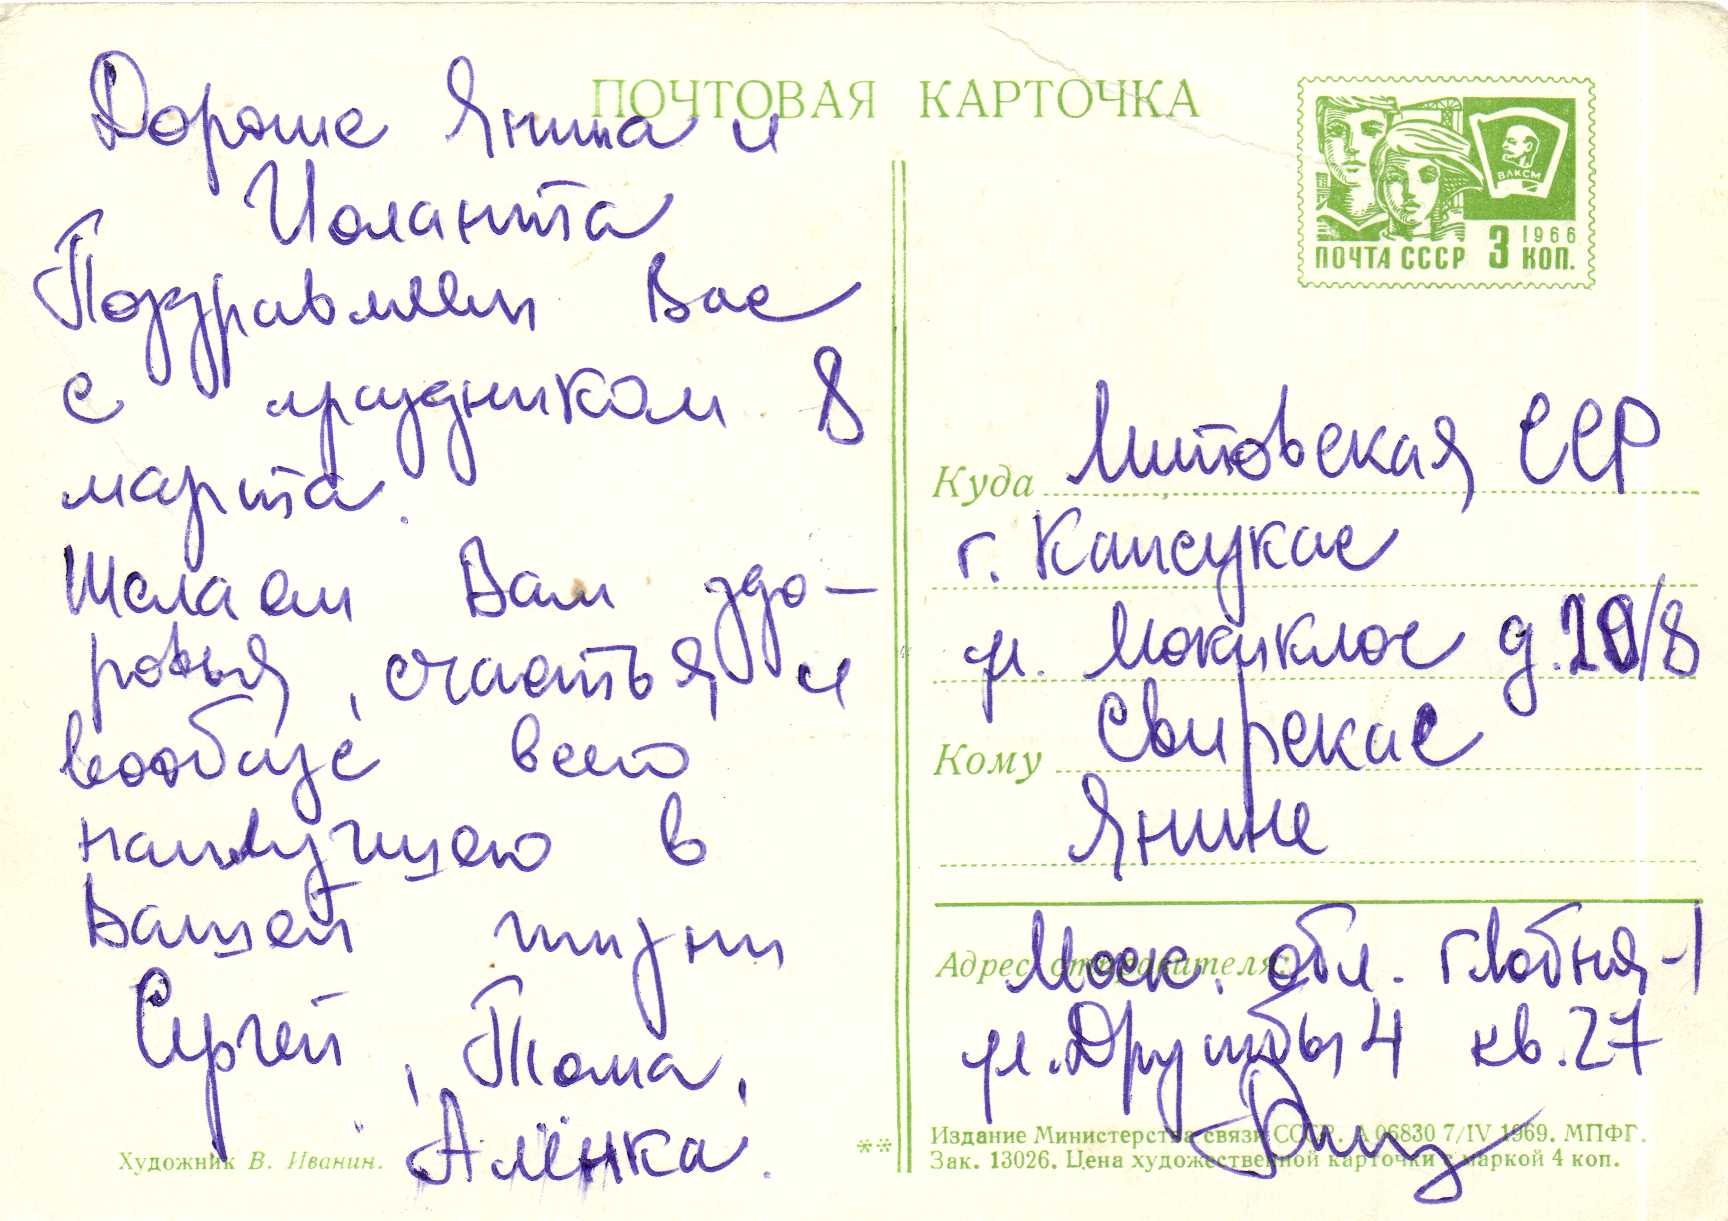 ПОЧТОВАЯ КАРТОЧКА
Дорогие Янина и
Иоланта
Поздравляем Вас
с праздником 8
марта.
Желаем Вам здо-
ровья, счастья и
вообще всего
наилучшего в
Вашей жизни
Сергей, Тома,
Алёнка.
Художник В. Иванин.
**
ВЛКСМ
1966
ПОЧТА СССР 3 КОП.
Куда Литовская ССР
г. Капсукас
ул. Мокиклос д. 20/8
Кому Свирскас
Янине
Адрес отправителя:
Моск. обл. г Лобня-1
ул. Дружбы 4 кв. 27
Издание Министерства связи СССР. А 06830 7/IV 1969. МПФГ.
Зак. 13026. Цена художественной карточки с маркой 4 коп.